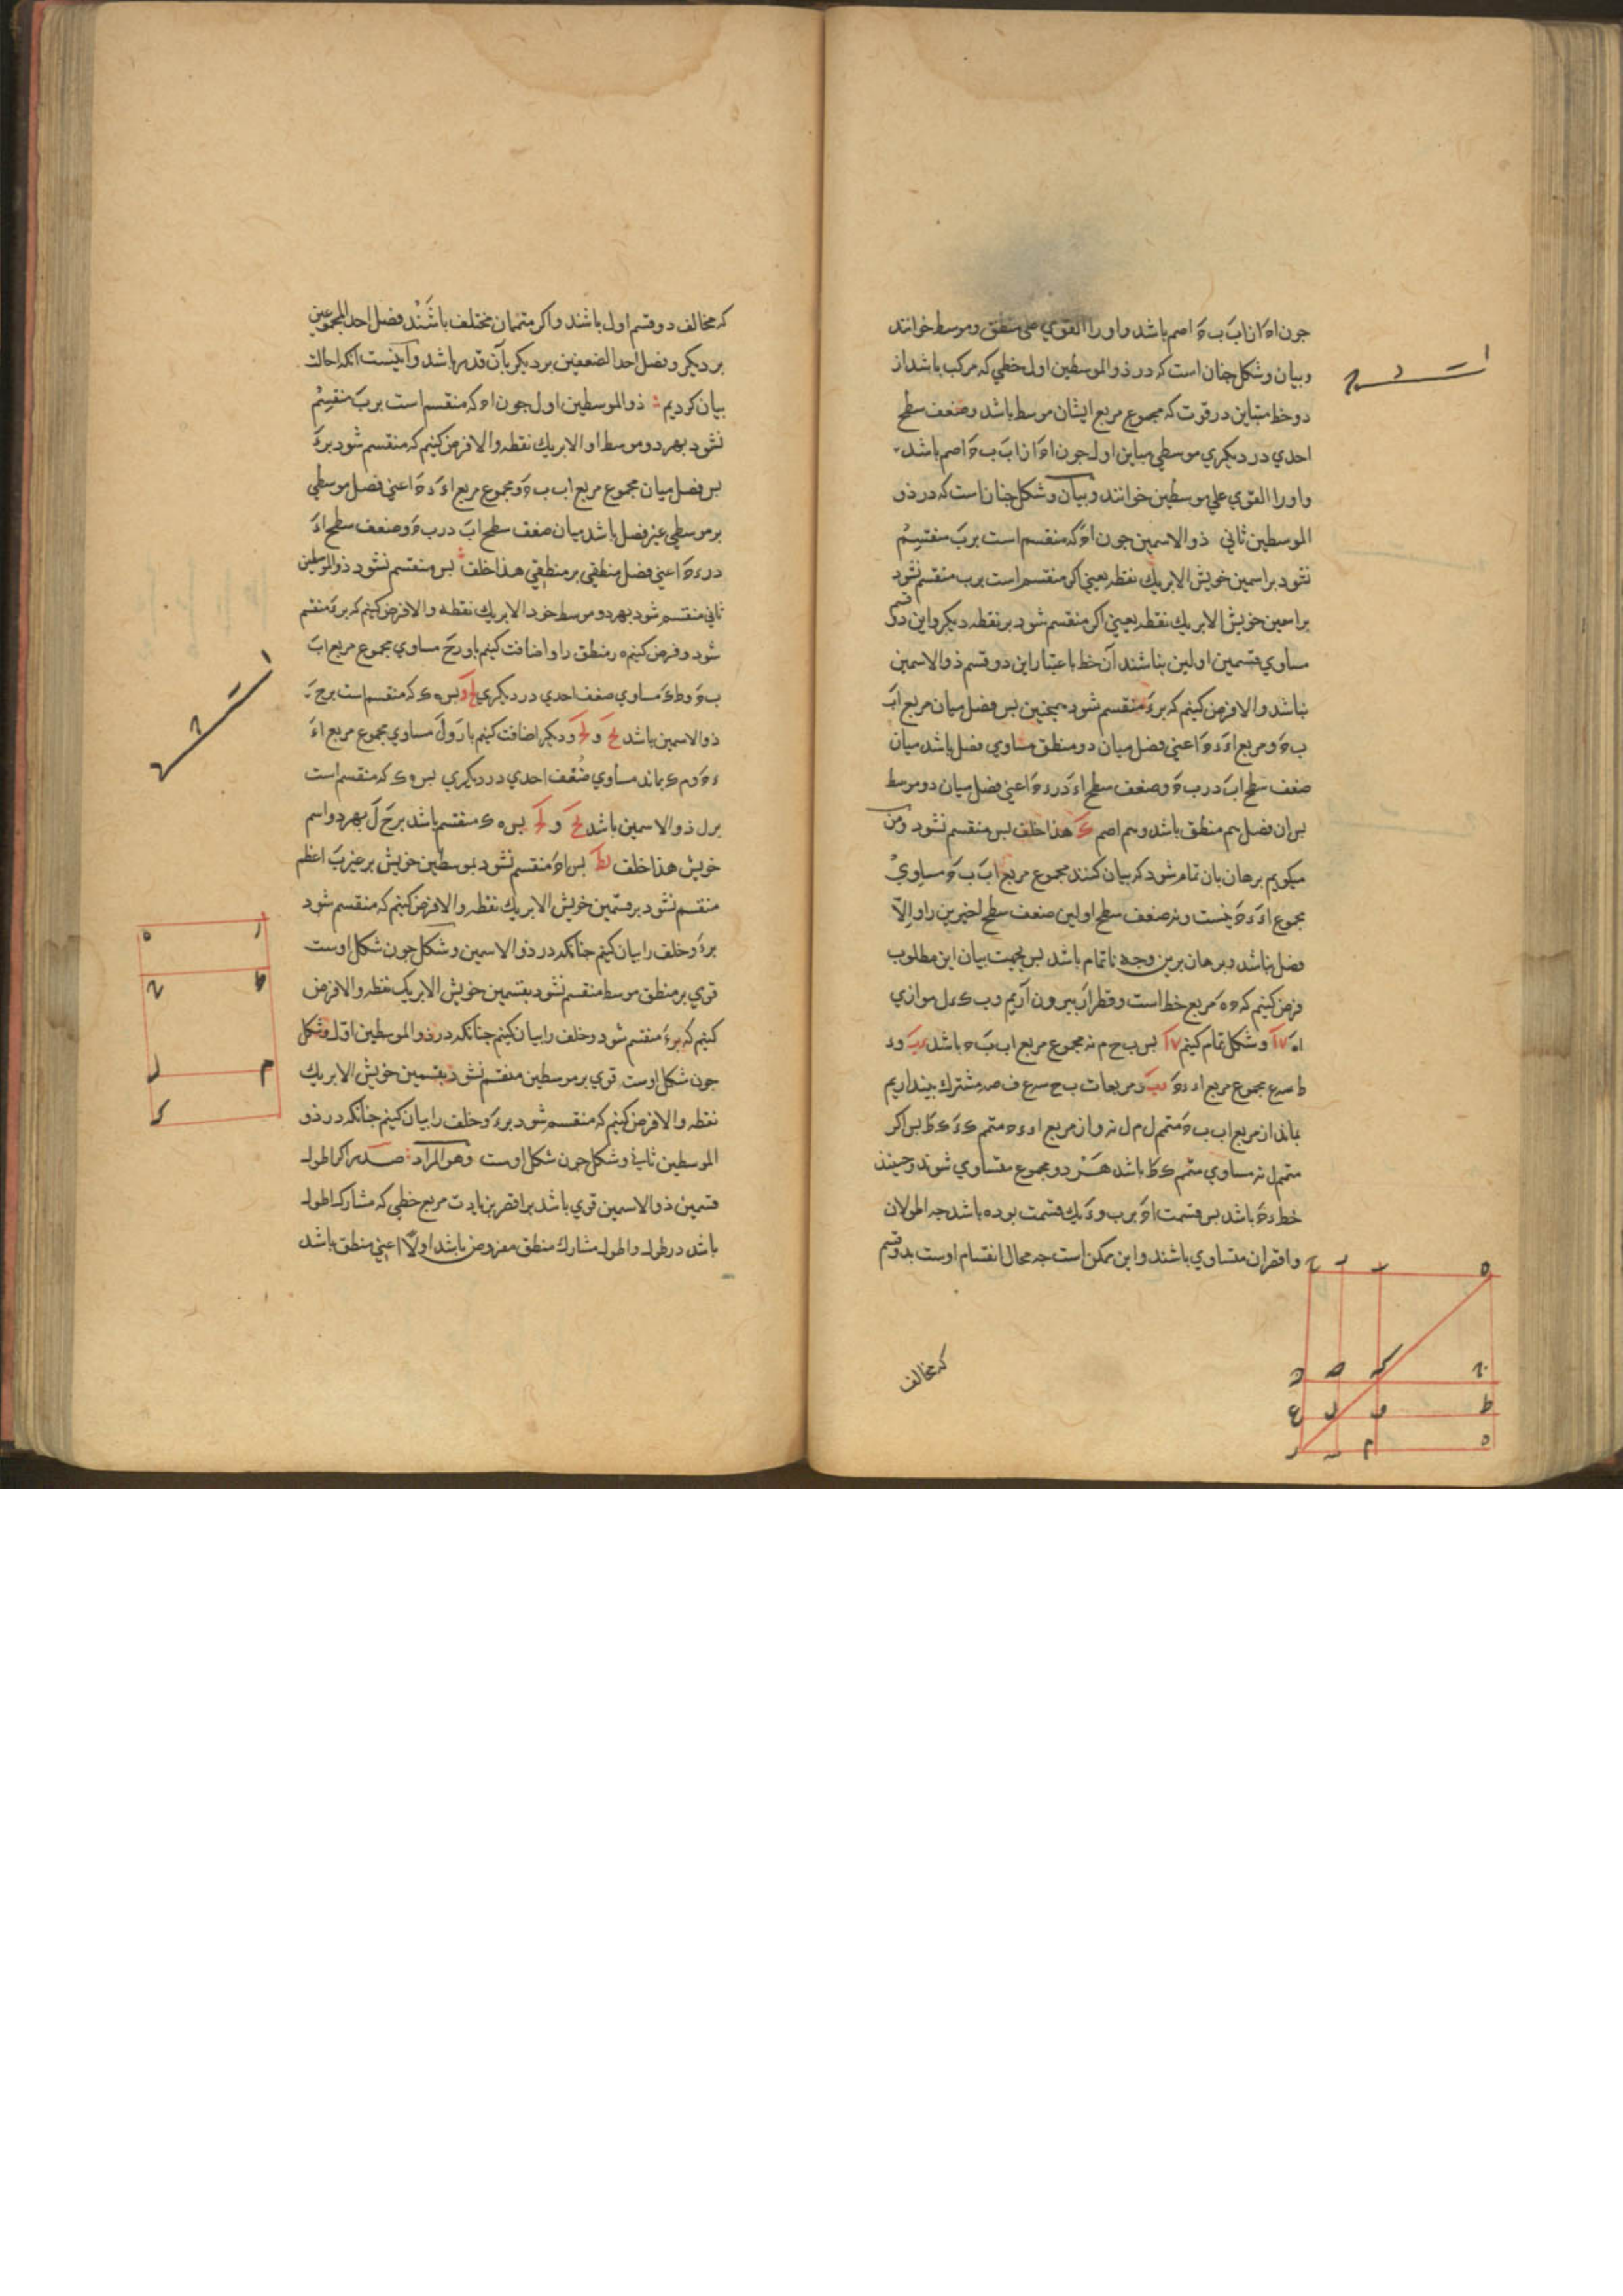 جون اه از اب ب ه اصم باشد و او را القوي علی منطق و موسط خوانند
و بیان و شکل جنان است که در ذو الموسطین اول خطي که مرکب باشد از
دو خط متباین در قوت که مجموع مربع ایشان موسط باشد و ضعف سطح
احدي در دیکري موسطي مباین اول جون اه از اب ب ه اصم باشد
و او را القوي علي موسطین خوانند و بیان و شکل جنان است که در ذو
الموسطین ثاني ذو الاسمین جون اه که منقسم است بر ب منقسم
نشود بر اسمین خویش الا بر یك نقطه یعني اکر منقسم است بر ب منقسم نشود
بر اسمین خویش الا بر یك نقطه یعني اکر منقسم شود بر نقطه دیکر و این دو قسم
مساوي قسمین اولین نباشند آن خط باعتبار این دو قسم ذو الاسمین
نباشد والا فرض کنیم که بر ء منقسم شود همجنین بس فضل میان مربع اب
ب ه و مربع اء ء ه اعني فضل میان دو منطق مساوي فضل باشد میان
ضعف سطح اب در ب ه و ضعف سطح اء در ء ه اعني فضل میان دو موسط
بس ان فضل هم منطق باشد و هم اصم هذا خلف بس منقسم نشود و من
میکویم برهان بان تمام شود که بیان کنند مجموع مربع اب ب ه مساوي
مجموع اء ء ه نیست و نه ضعف سطح اولین ضعف سطح اخیرین را و الا
فضل نباشد و برهان برین وجه ناتمام باشد بس بجهت بیان این مطلوب
فرض کنیم که ه ه مربع خط است و قطر از بیرون آریم و ب ک ء ل موازي
اه و شکل تمام کنیم بس ب ح م نه مجموع مربع اب ب ه باشد و د
ط سه ع مجموع مربع اء ء ه و مربعات ب ح سه ع ف صه مشترك بیندازیم
بماند از مربع اب ب ه متمم ل م ل نه و از مربع اء ء ه متمم ک ء ک ط بس اکر
متمم ل نه مساوي متمم ک ط باشد هر دو مجموع متساوي شوند و حینئذ
خط ء ه باشد بس قسمت اه بر ب و ء یك قسمت بوده باشد جه اطولان
و اقصران متساوي باشند و این ممکن است جه محال انقسام اوست بدو قسم
که مخالف
که مخالف دو قسم اول باشند و اکر متممان مختلف باشند فضل احد المجموعین
بر دیکر و فضل احد الضعفین بر دیکر بآن قدر باشد و آنیست انکه احالت
بیان کردیم ذو الموسطین اول جون اه که منقسم است بر ب منقسم
نشود بهر دو موسط او الا بر یك نقطه والا فرض کنیم که منقسم شود بر ء
بس فضل میان مجموع مربع اب ب ه و مجموع مربع اء ء ه اعني فضل موسطي
بر موسطي عین فضل باشد میان ضعف سطح اب در ب ه و ضعف سطح اء
در ء ه اعني فضل منطقي بر منطقي هذا خلف بس منقسم نشود ذو الموسطین
ثاني منقسم نشود بهر دو موسط خود الا بر یك نقطه والا فرض کنیم که بر ء منقسم
شود و فرض کنیم ه ر منطق را و اضافت کنیم باو ر ح مساوي مجموع مربع اب
ب ه و ط ک مساوي ضعف احدي در دیکري بس ه ک که منقسم است بر ح
ذو الاسمین باشد و دیکر اضافت کنیم با ر و ل مساوي مجموع مربع اء
ء ه و م ک بماند مساوي ضعف احدي در دیکري بس ه ک که منقسم است
بر ل ذو الاسمین باشد و بس ه ک منقسم باشد بر ح ل بهر دو اسم
خویش هذا خلف بس اه منقسم نشود بموسطین خویش بر غیر ب اعظم
منقسم نشود بر قسمین خویش الا بر یك نقطه والا فرض کنیم که منقسم شود
بر ء و خلف را بیان کنیم جنانکه در ذو الاسمین و شکل جون شکل اوست
قوي بر منطق موسط منقسم نشود بقسمین خویش الا بر یک نقطه والا فرض
کنیم که بر ء منقسم شود و خلف را بیان کنیم جنانکه در ذو الموسطین اول و شکل
جون شکل اوست قوي بر موسطین منقسم نشود بقسمین خویش الا بر یك
نقطه والا فرض کنیم که منقسم شود بر ء و خلف را بیان کنیم جنانکه در ذو
الموسطین ثاني و شکل جون شکل اوست وهو المراد صدر اکر اطول
قسمین ذو الاسمین قوي باشد بر اقصر بزیادت مربع خطي که مشارک اطول
باشد در طول و اطول مشارك منطق مفروض باشد اولا اعني منطق باشد